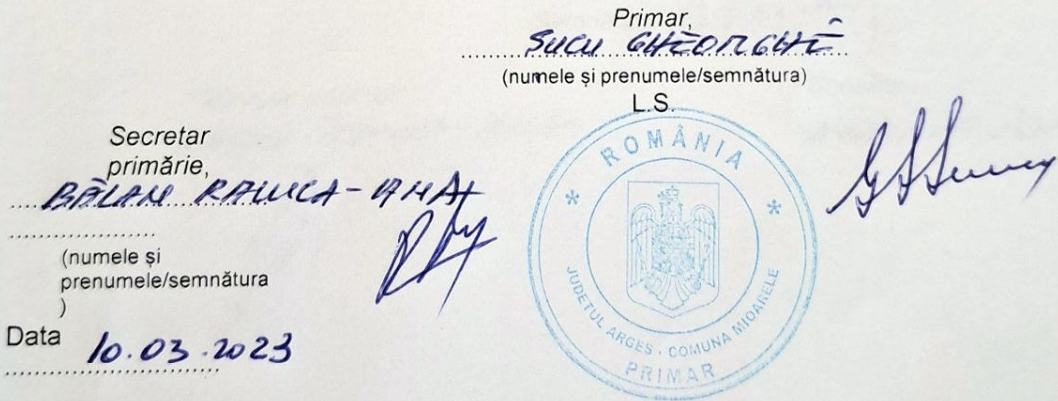 Primar,
SUCU GHEORGHE
(numele și prenumele/semnătura)
L.S.
Secretar
primărie,
BĂLAN RALUCA-ANA
(numele și
prenumele/semnătura
)
Data 10.03.2023
ROMÂNIA
* *
JUDEȚUL ARGEȘ - COMUNA MIOARELE
PRIMAR